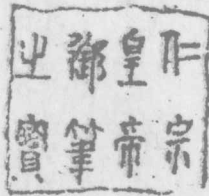 仁宗
皇帝
御筆
之寶